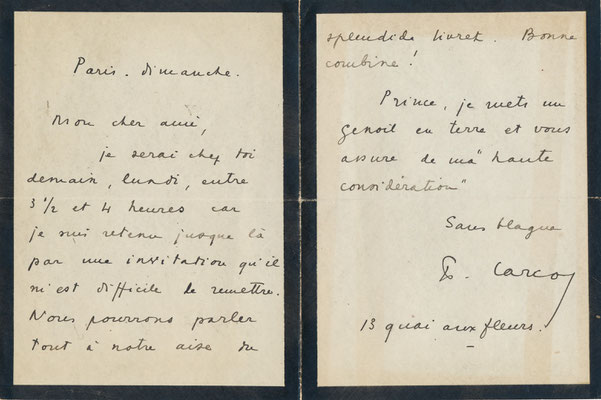 Paris. dimanche.
Mon cher ami,
je serai chez toi
demain, lundi, entre
3 1/2 et 4 heures car
je suis retenu jusque là
par une invitation qu'il
m'est difficile de remettre.
Nous pourrons parler
tout à notre aise du
splendide livret. Bonne
combine !
Prince, je mets un
genoil en terre et vous
assure de ma "haute
considération"
Sans blague
F. Carco
13 quai aux fleurs.